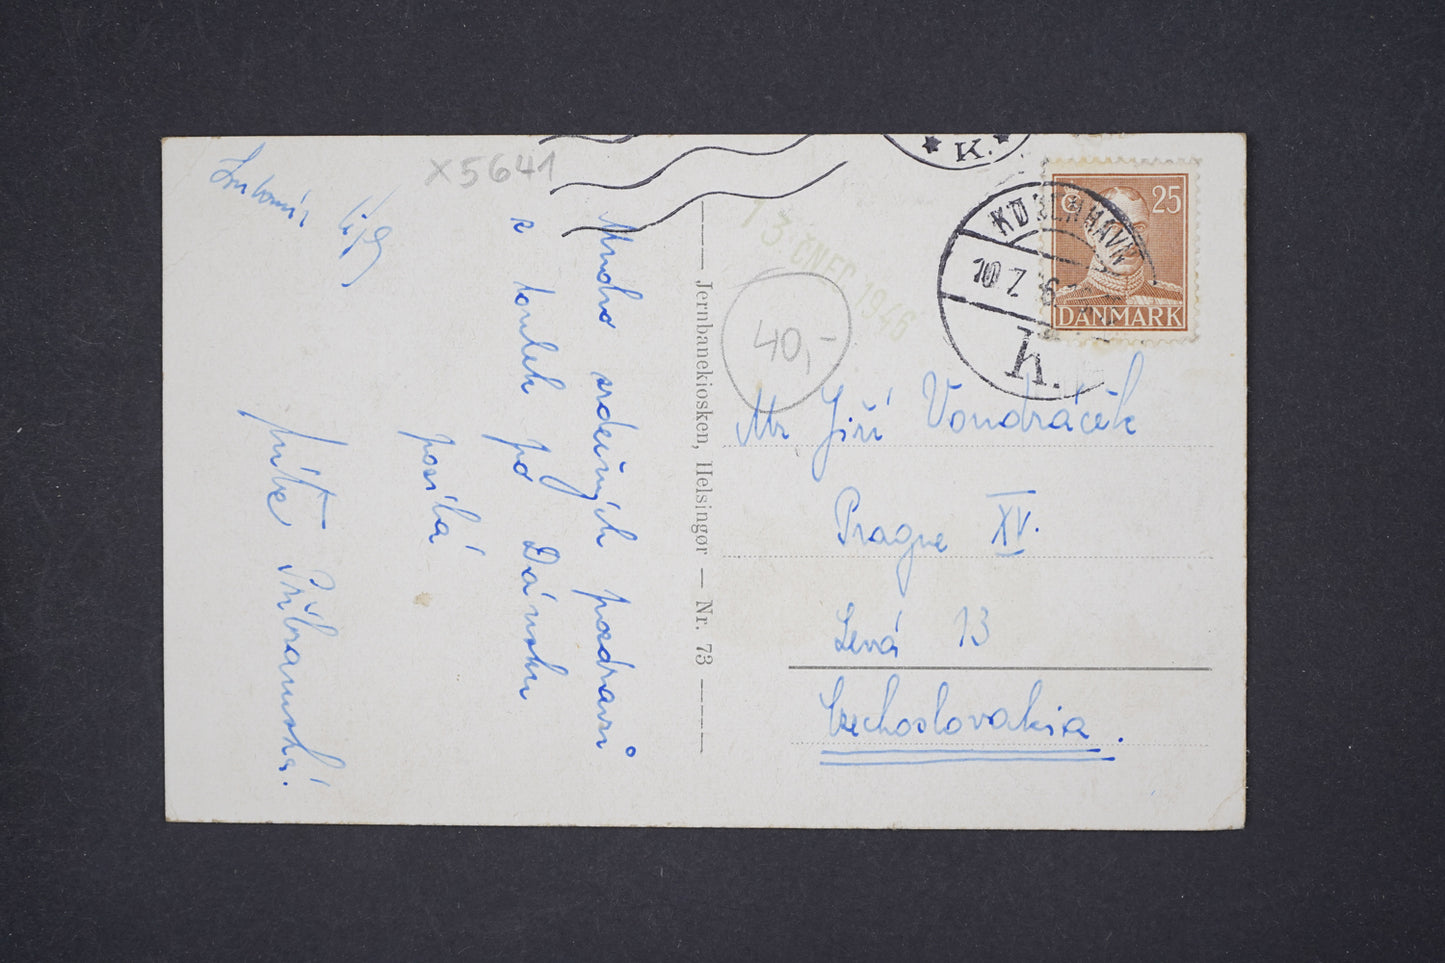 X5641
Mnoho srdečných pozdravů
z toulek po Dánsku
posílá
Příbramská.
Lubomír
Jernbanekiosken, Helsingør — Nr. 73
13 ČNEC 1946
40,-
K.
KØBENHAVN
10 7. 46
K.
25
DANMARK
Mr Jiří Vondráček
Prague XV.
Levá 13
Czechoslovakia.